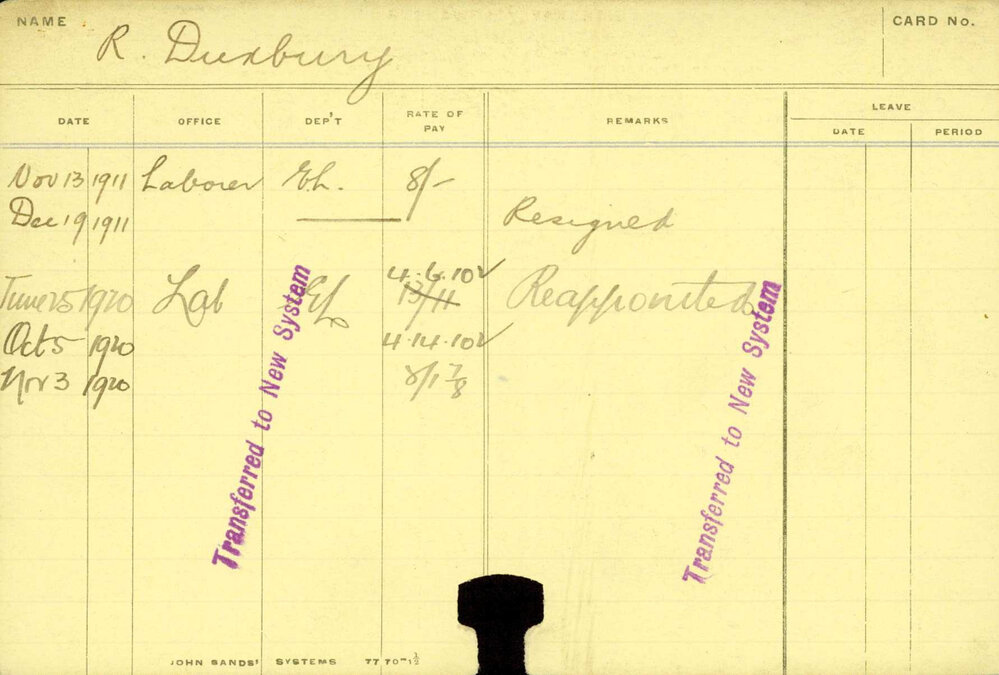 NAME R. Duxbury CARD No.
DATE OFFICE DEP'T RATE OF PAY REMARKS LEAVE
DATE PERIOD
Nov 13 1911 Laborer Eh. 8/-
Dec 19 1911 Resigned
June 25 1920 Lab 4.6.10 13/11 Reappointed
Oct 5 1920 4.14.10
Nov 3 1920 7/8
Transferred to New System
Transferred to New System
JOHN SANDS' SYSTEMS 77 70